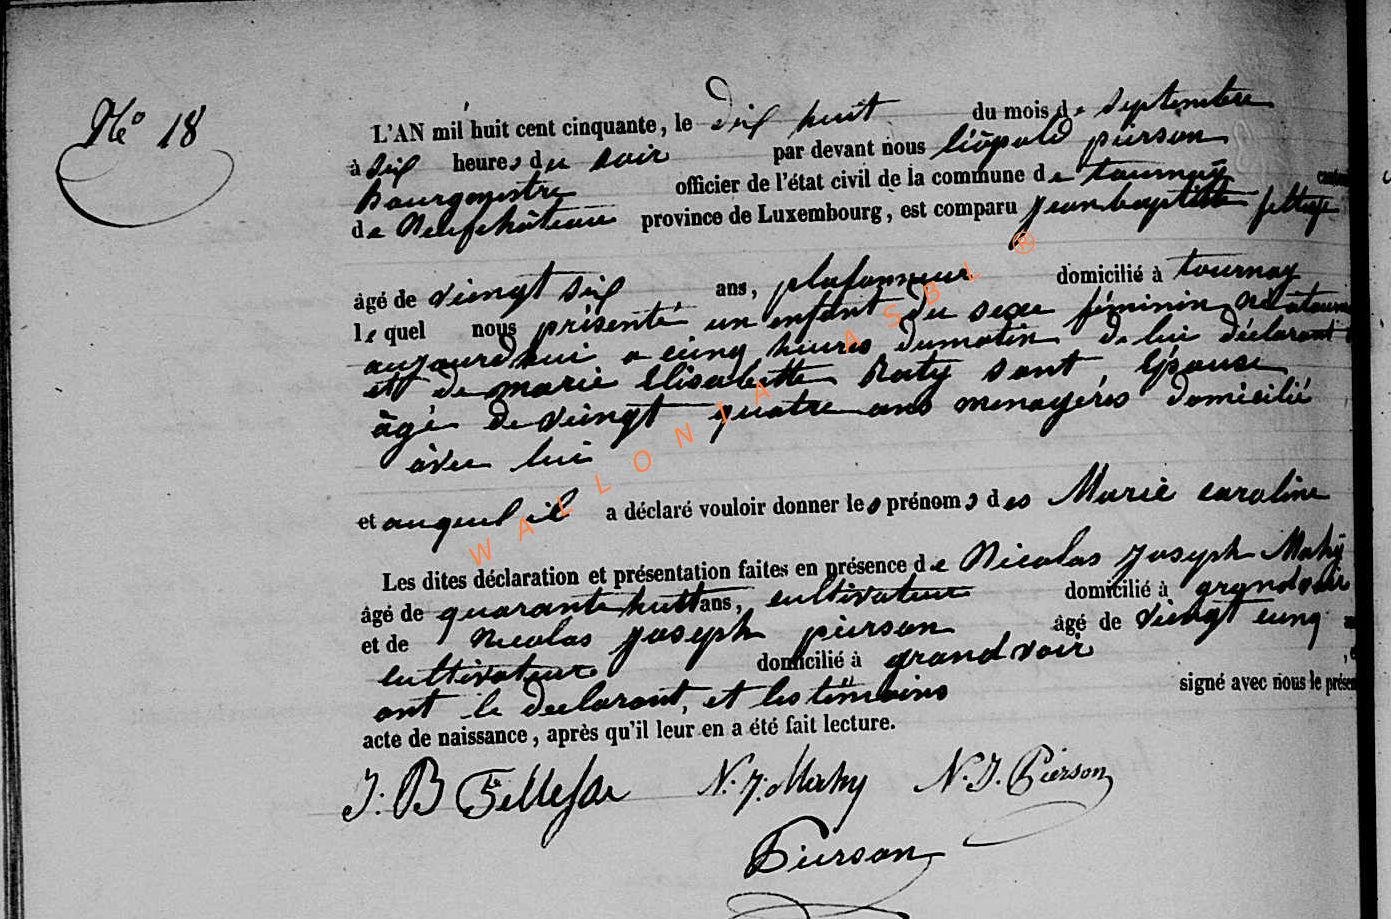 No 18
L'AN mil huit cent cinquante, le dix huit du mois de septembre
à six heures du soir par devant nous léopold pierson
Bourgmestre officier de l'état civil de la commune de tournay
de Neufchâteau province de Luxembourg, est comparu jean baptiste
âgé de vingt six ans, plafonneur domicilié à tournay
le quel nous présenté un enfant du sexe féminin né
aujourdhui a cinq heures dumatin de lui déclarant
et de marie élisabette Raty sont épouse
âgé de vingt quatre ans menagérés domicilié
avec lui
et auquel il a déclaré vouloir donner les prénoms des Marie caroline
Les dites déclaration et présentation faites en présence de Nicolas Joseph Mahy
âgé de quarante huit ans, cultivateur domicilié à grandvoir
et de Nicolas joseph pierson âgé de vingt cinq
cultivateur domicilié à grandvoir
ont le declarant, et les témoins signé avec nous le présen
acte de naissance, après qu'il leur en a été fait lecture.
J. B N. J. Mahy N. J. Pierson
Pierson
WALLONIA ASBL ®